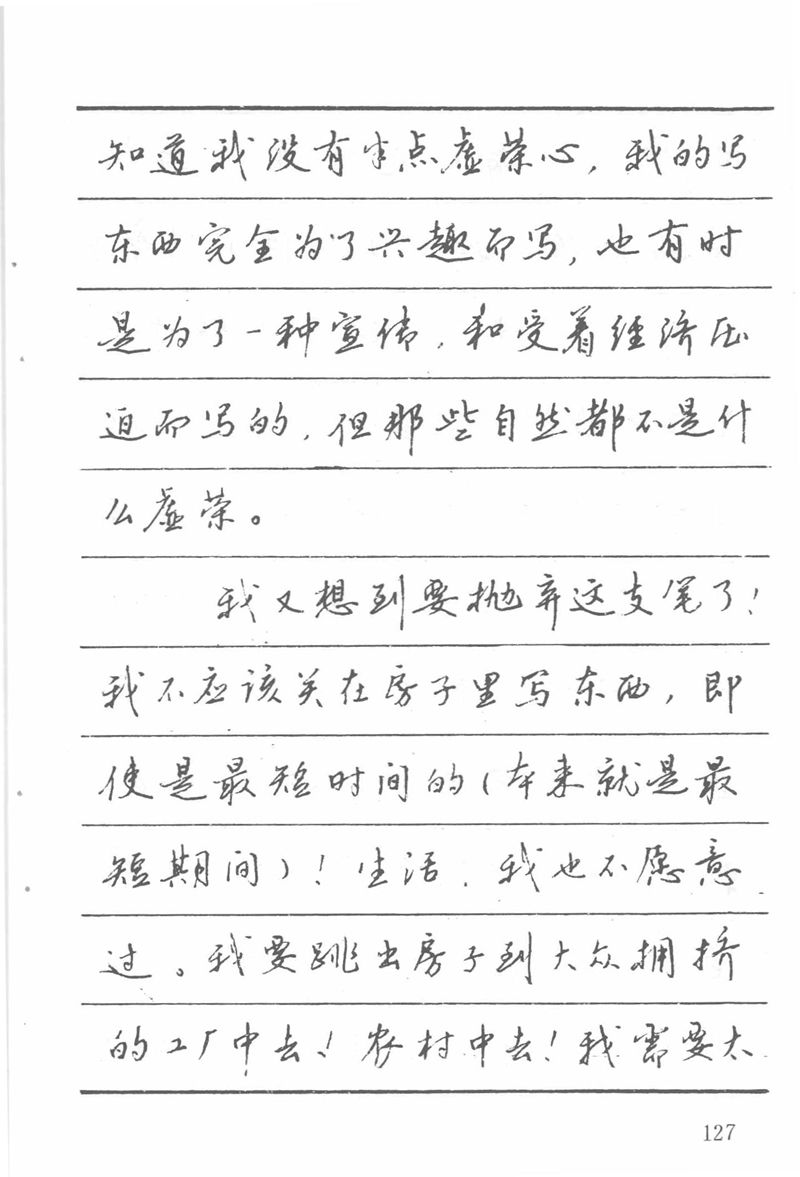 知道我没有半点虚荣心，我的写
东西完全为了兴趣而写，也有时
是为了一种宣传，和受着经济压
迫而写的，但那些自然都不是什
么虚荣。
我又想到要抛弃这支笔了！
我不应该关在房子里写东西，即
使是最短时间的（本来就是最
短期间）！生活，我也不愿意
过。我要跳出房子到大众拥挤
的工厂中去！农村中去！我需要太
127